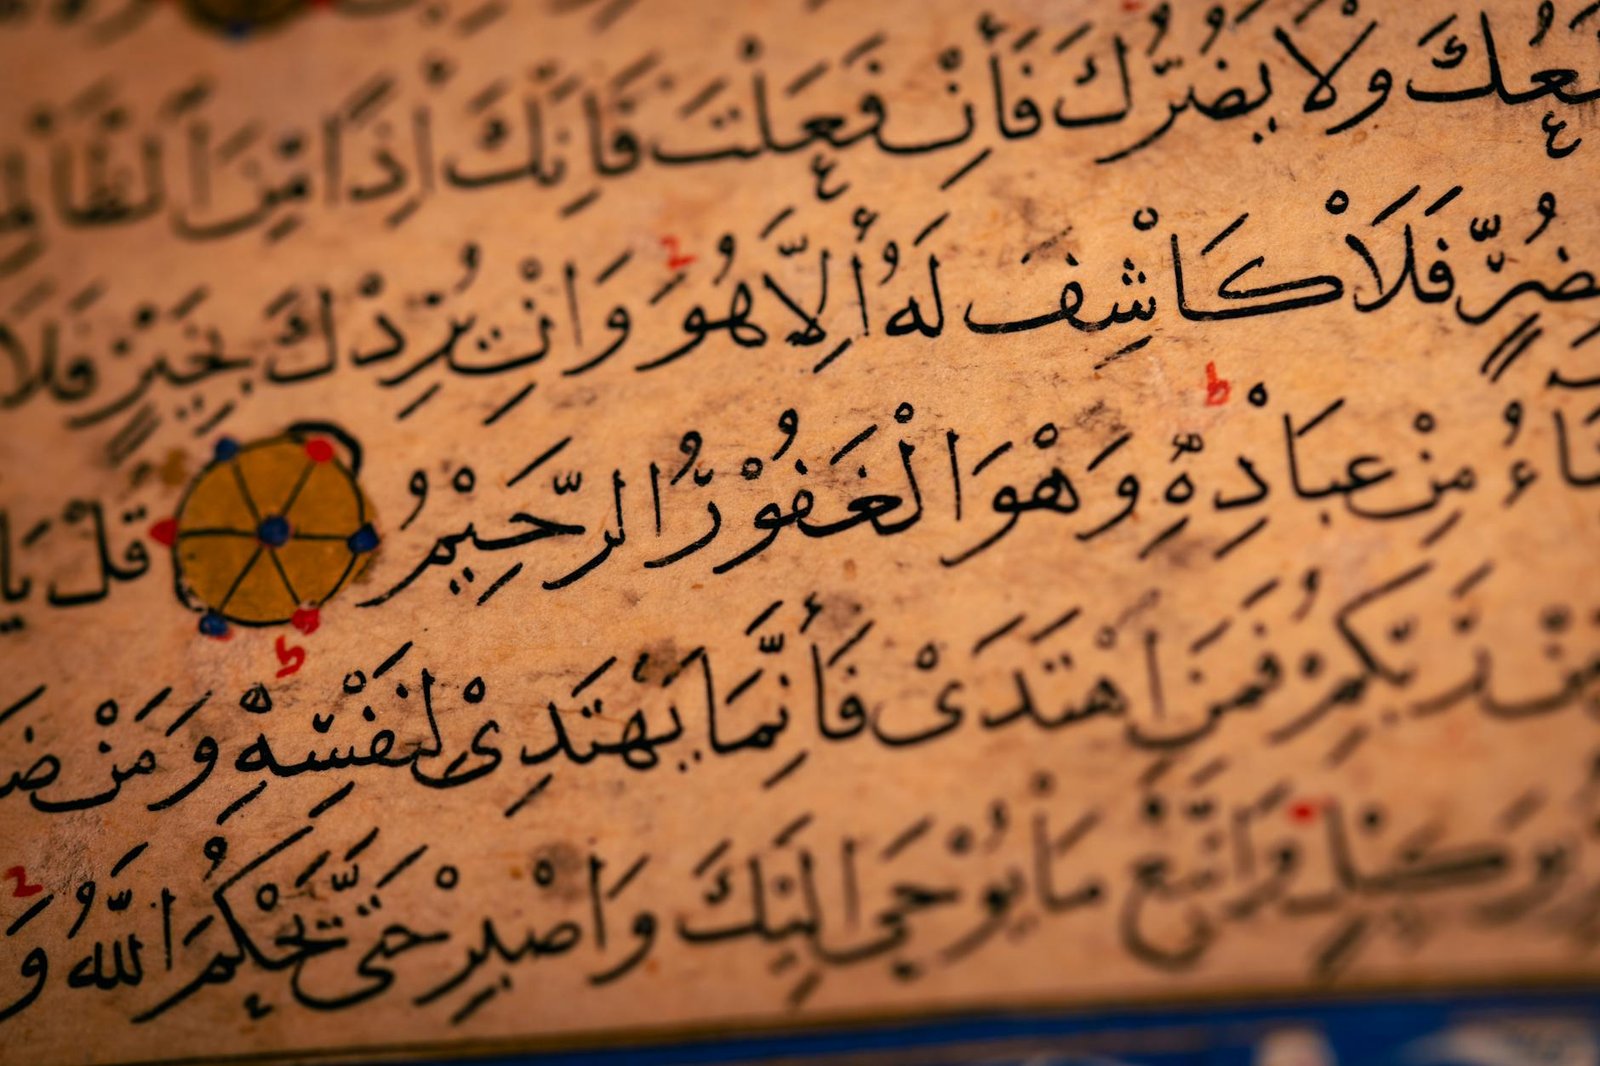 يَنْفَعُكَ وَلَا يَضُرُّكَ فَأِنْ فَعَلْتَ فَاِنَّكَ اِذًا مِنَ الظَّالِمِ
بِضُرٍّ فَلَا كَاشِفَ لَهُ أِلَّا هُوَ وَاِنْ يُرِدْكَ بِخَيْرٍ فَلَا
ءُ مِنْ عِبَادِهٖ وَهْوَ الْغَفُوْرُ الرَّحِيْمُ قُلْ يَا
مِنْ رَبِّكُمْ فَمَنِ اهْتَدَىْ فَأِنَّمَا يَهْتَدِىْ لِنَفْسِهْ وَمَنْ
بِوَكِيلٍ وَاتَّبِعْ مَا يُوْحَى اِلَيْكَ وَاصْبِرْ حَتّٰى يَحْكُمَ اللّٰهُ وَ